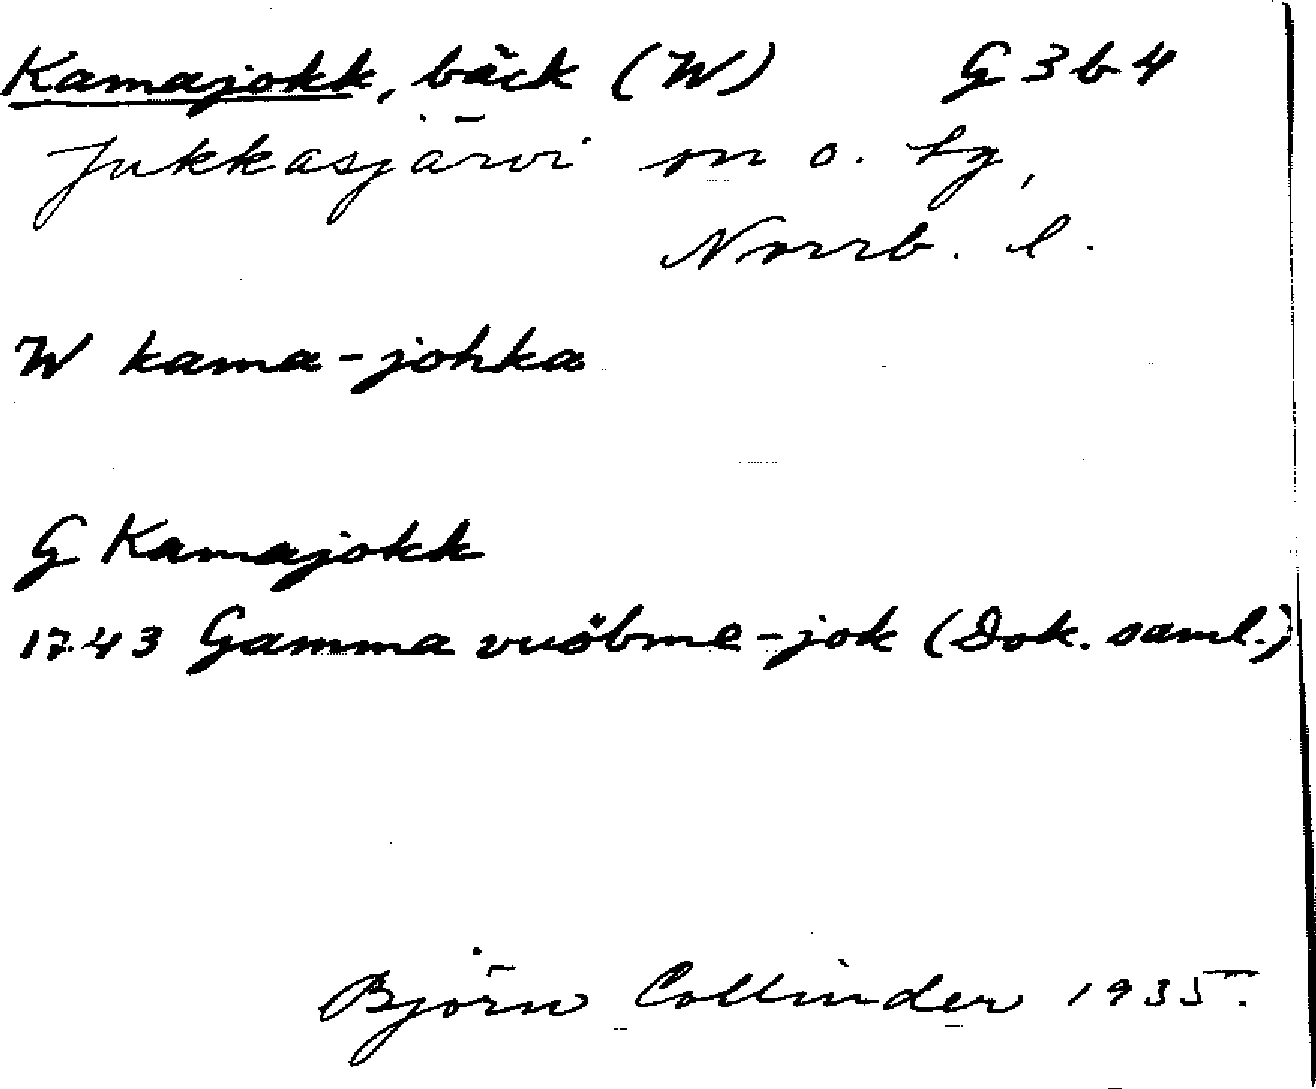 Kamajokk, bäck (W) G 3 b 4
Jukkasjärvi sn o. tg,
Norrb. l.
W kama-johka
G Kamajokk
1743 Gamma vuöbme-jok (Dok. saml.)
Björn Collinder 1935.